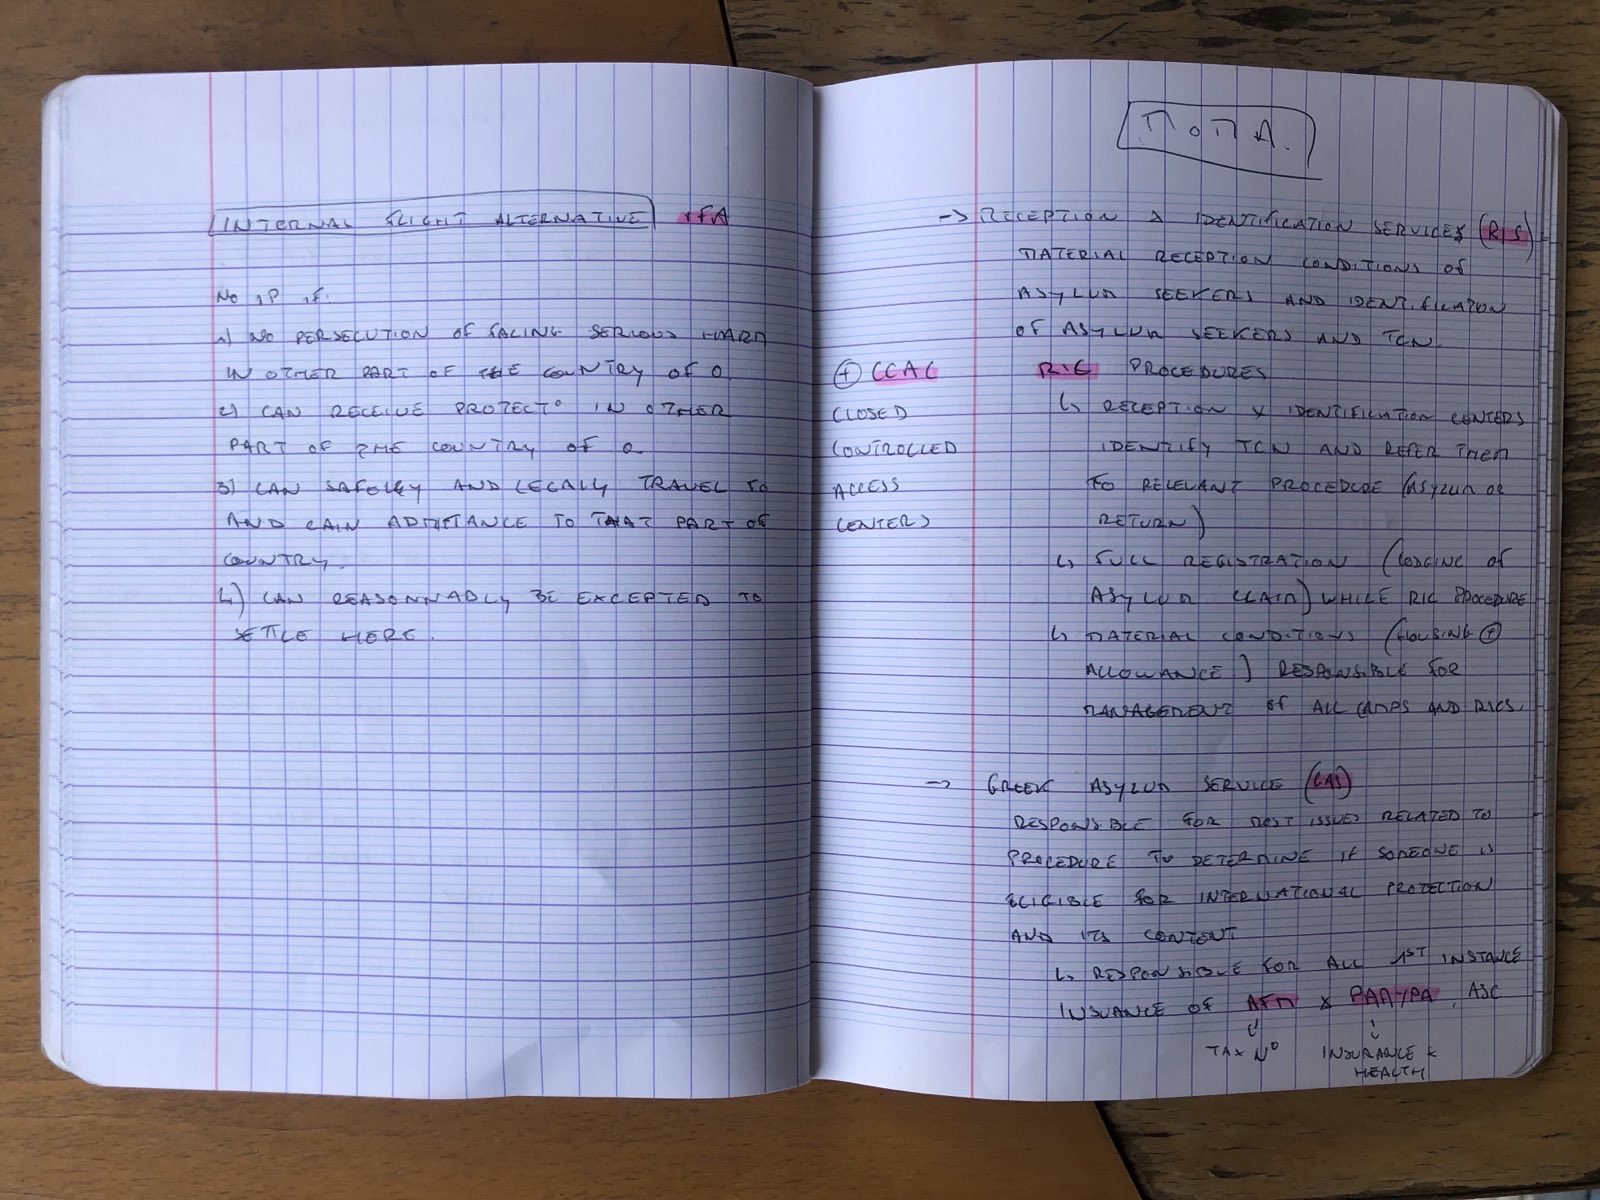 INTERNAL FLIGHT ALTERNATIVE IFA
No IP if.
1) NO PERSECUTION OF FACING SERIOUS HARM
IN OTHER PART OF THE COUNTRY OF O.
2) CAN RECEIVE PROTECT° IN OTHER
PART OF THE COUNTRY OF O.
3) CAN SAFELY AND LEGALLY TRAVEL TO
AND GAIN ADMITTANCE TO THAT PART OF
COUNTRY.
4) CAN REASONNABLY BE EXCEPTED TO
SETTLE HERE.
ΠΟΠΑ.
→ RECEPTION & IDENTIFICATION SERVICES (RIS)
MATERIAL RECEPTION CONDITIONS OF
ASYLUM SEEKERS AND IDENTIFICATION
OF ASYLUM SEEKERS AND TCN.
⊕ CCAC
CLOSED
CONTROLLED
ACCESS
CENTERS
RIC PROCEDURES
↳ RECEPTION & IDENTIFICATION CENTERS
IDENTIFY TCN AND REFER THEM
TO RELEVANT PROCEDURE (ASYLUM OR
RETURN)
↳ FULL REGISTRATION (LODGING OF
ASYLUM CLAIM) WHILE RIC PROCEDURE
↳ MATERIAL CONDITIONS (HOUSING ⊕
ALLOWANCE) RESPONSIBLE FOR
MANAGEMENT OF ALL CAMPS AND RICS.
→ GREEK ASYLUM SERVICE (GAS)
RESPONSIBLE FOR MOST ISSUES RELATED TO
PROCEDURE TO DETERMINE IF SOMEONE IS
ELIGIBLE FOR INTERNATIONAL PROTECTION
AND ITS CONTENT
↳ RESPONSIBLE FOR ALL 1ST INSTANCE
INSUANCE OF AFM & PAAYPA, ASC
↓ ↓
TAX N° INSURANCE &
HEALTH